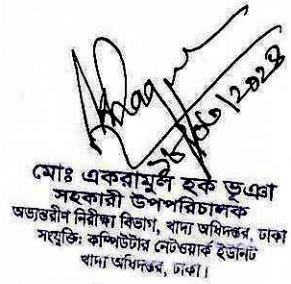 ২৮/০৫/২০২৪
মোঃ একরামুল হক ভূঞা
সহকারী উপপরিচালক
অভ্যন্তরীণ নিরীক্ষা বিভাগ, খাদ্য অধিদপ্তর, ঢাকা
সংযুক্তি: কম্পিউটার নেটওয়ার্ক ইউনিট
খাদ্য অধিদপ্তর, ঢাকা।